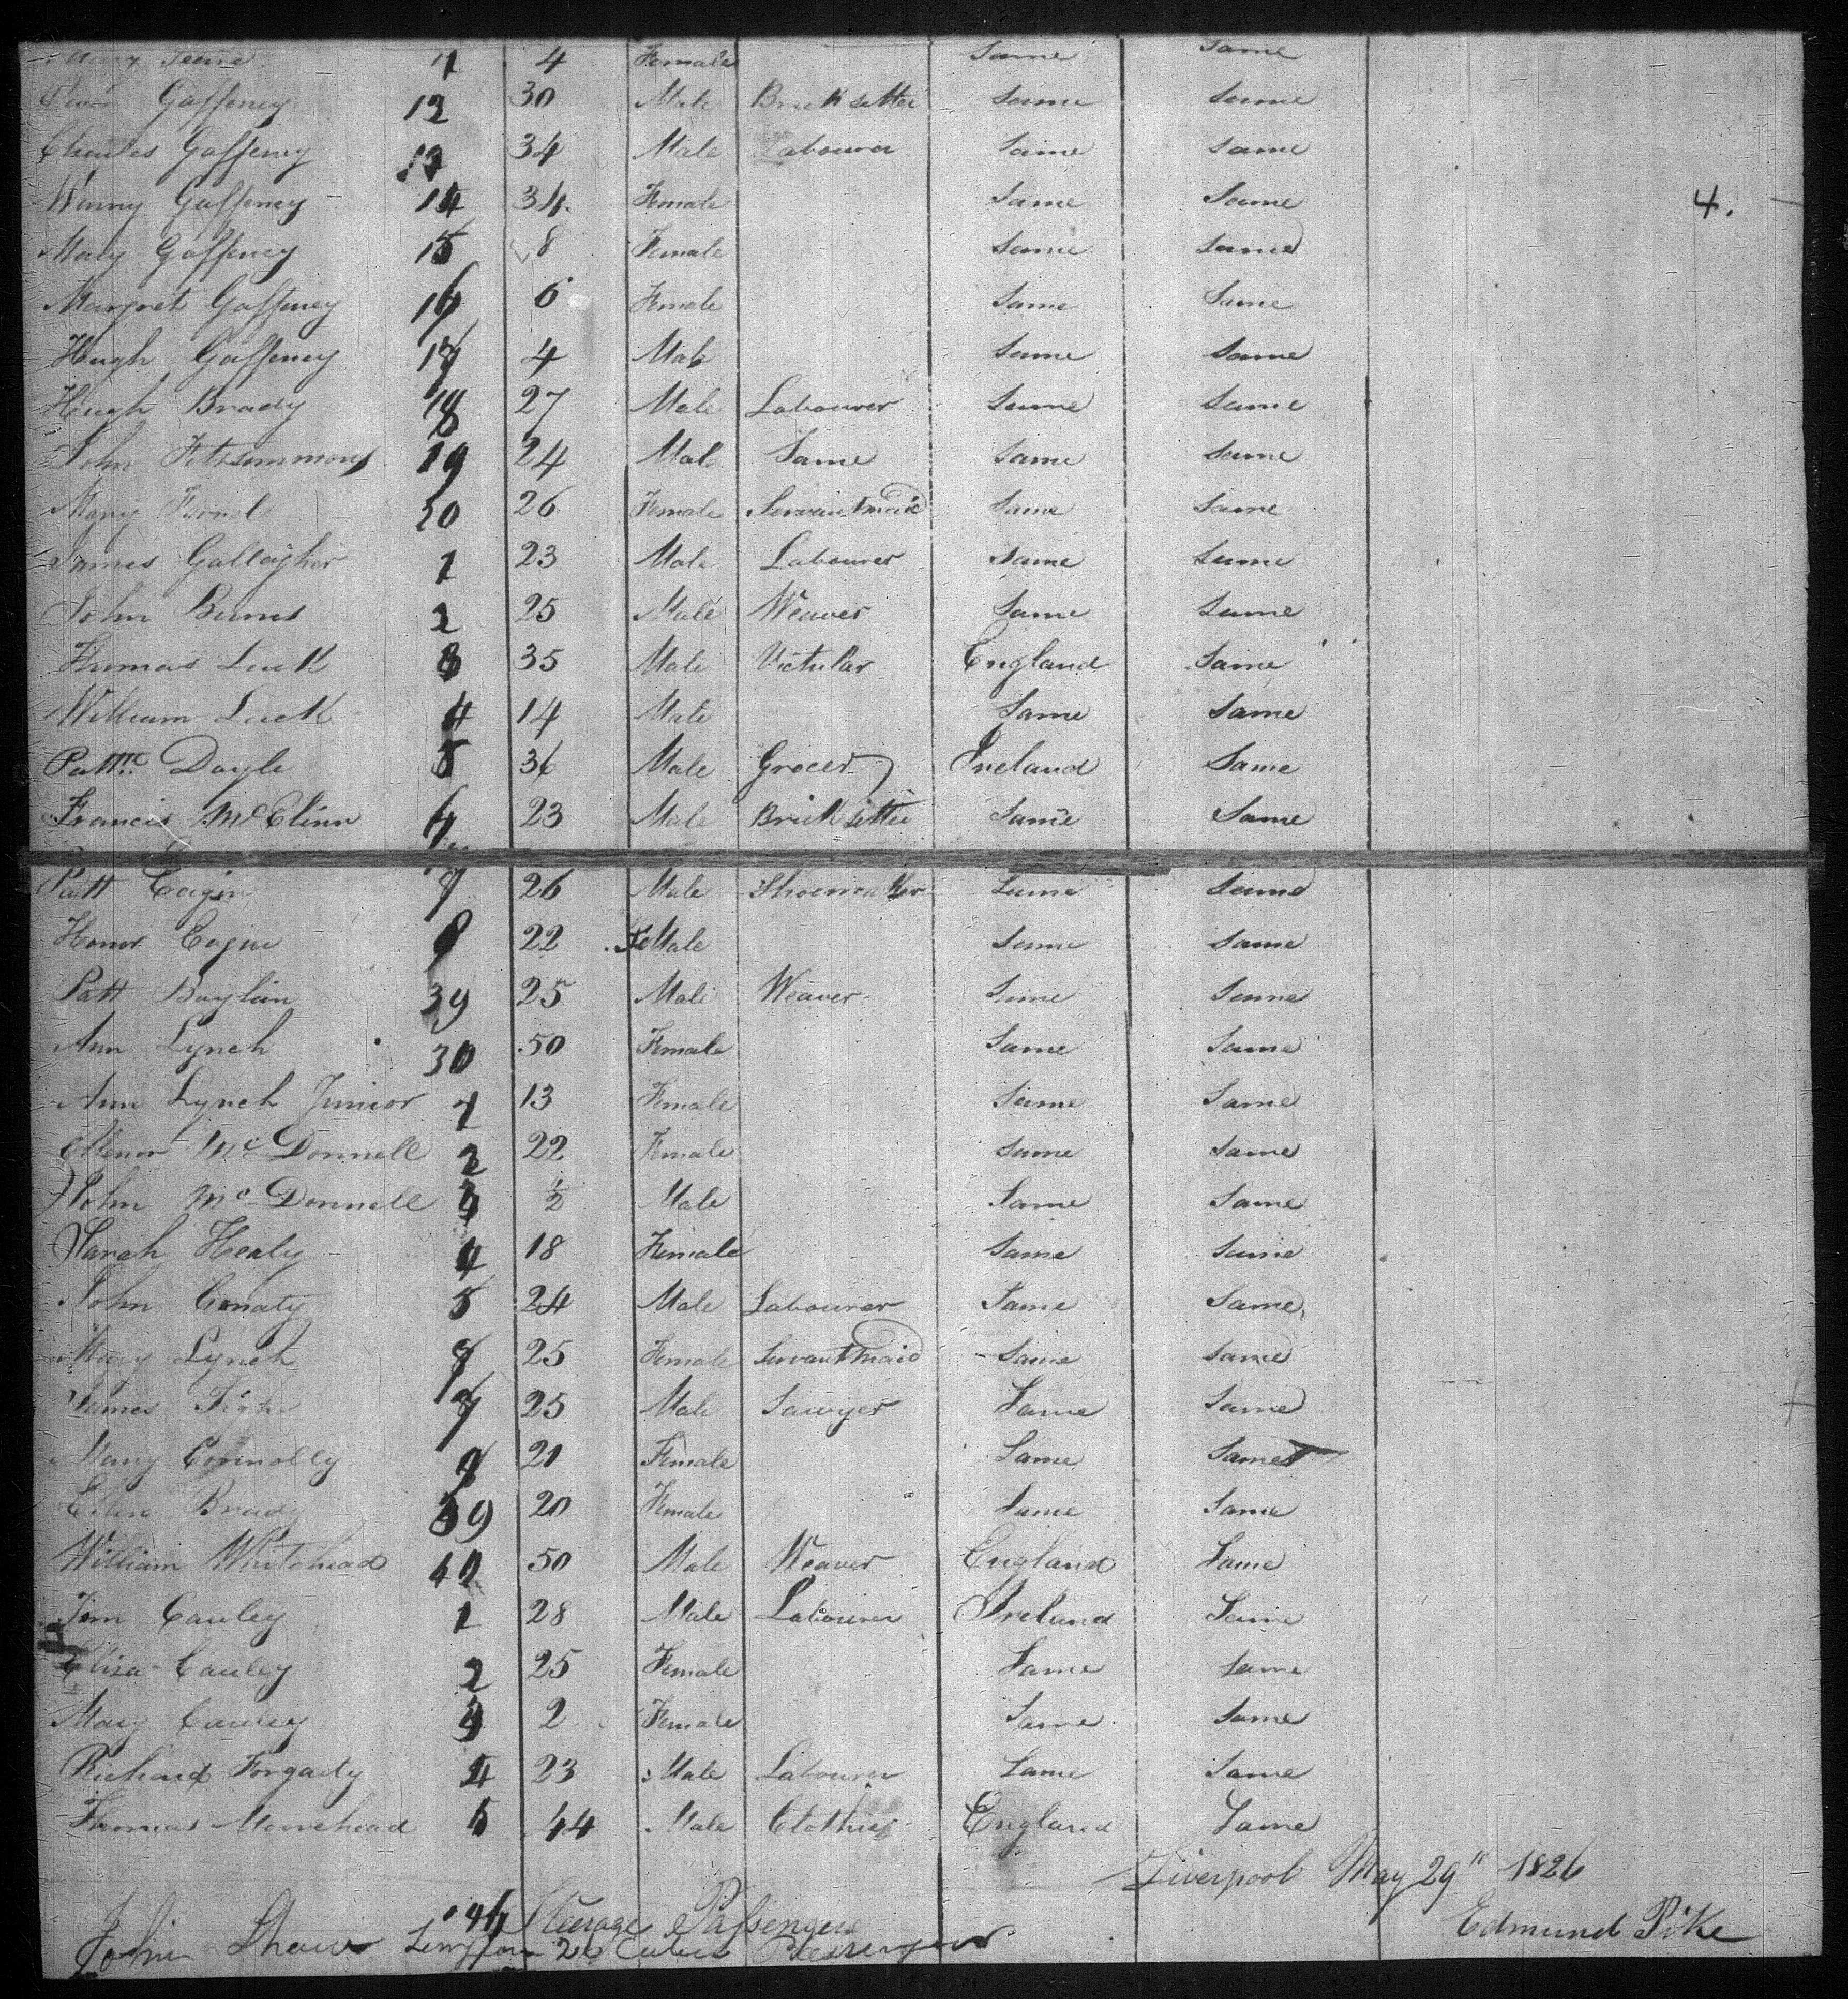 4 Female Same Same
Gaffeney 12 30 Male Brick setter Same Same
Charles Gaffeney 13 34 Male Labourer Same Same
Winny Gaffeney 14 34 Female Same Same 4.
Mary Gaffeney 15 8 Female Same Same
Margret Gaffeney 16 6 Female Same Same
Hugh Gaffeney 17 4 Male Same Same
Hugh Brady 18 27 Male Labourer Same Same
John Fitzsemmons 19 24 Male Same Same Same
Mary 20 26 Female Servantmaid Same Same
James Gallagher 1 23 Male Labourer Same Same
John Burns 2 25 Male Weaver Same Same
Thomas Luck 3 35 Male Victular England Same
William Luck 4 14 Male Same Same
Doyle 5 36 Male Grocer Ireland Same
Francis McClinn 6 23 Male Brick setter Same Same
Patt 7 26 Male Shoemaker Same Same
Honor 8 22 FeMale Same Same
Patt Baylan 39 25 Male Weaver Same Same
Ann Lynch 30 50 Female Same Same
Ann Lynch Junior 1 13 Female Same Same
Ellenor McDonnell 2 22 Female Same Same
John McDonnell 3 ½ Male Same Same
Sarah Healy 4 18 Female Same Same
John Conaty 5 24 Male Labourer Same Same
Mary Lynch 25 Female Servantmaid Same Same
James 7 25 Male Sawyer Same Same
Mary Connolly 21 Female Same Same
Ellen 39 20 Female Same Same
William Whitehead 40 50 Male Weaver England Same
Jim Cauley 1 28 Male Labourer Ireland Same
Eliza Cauley 2 25 Female Same Same
Mary Cauley 3 2 Female Same Same
Richard Forgarty 4 23 Male Labourer Same Same
Thomas Morehead 5 44 Male Clothier England Same
Liverpool May 29" 1826
Steerage Passengers Edmund Pike
John Passengers